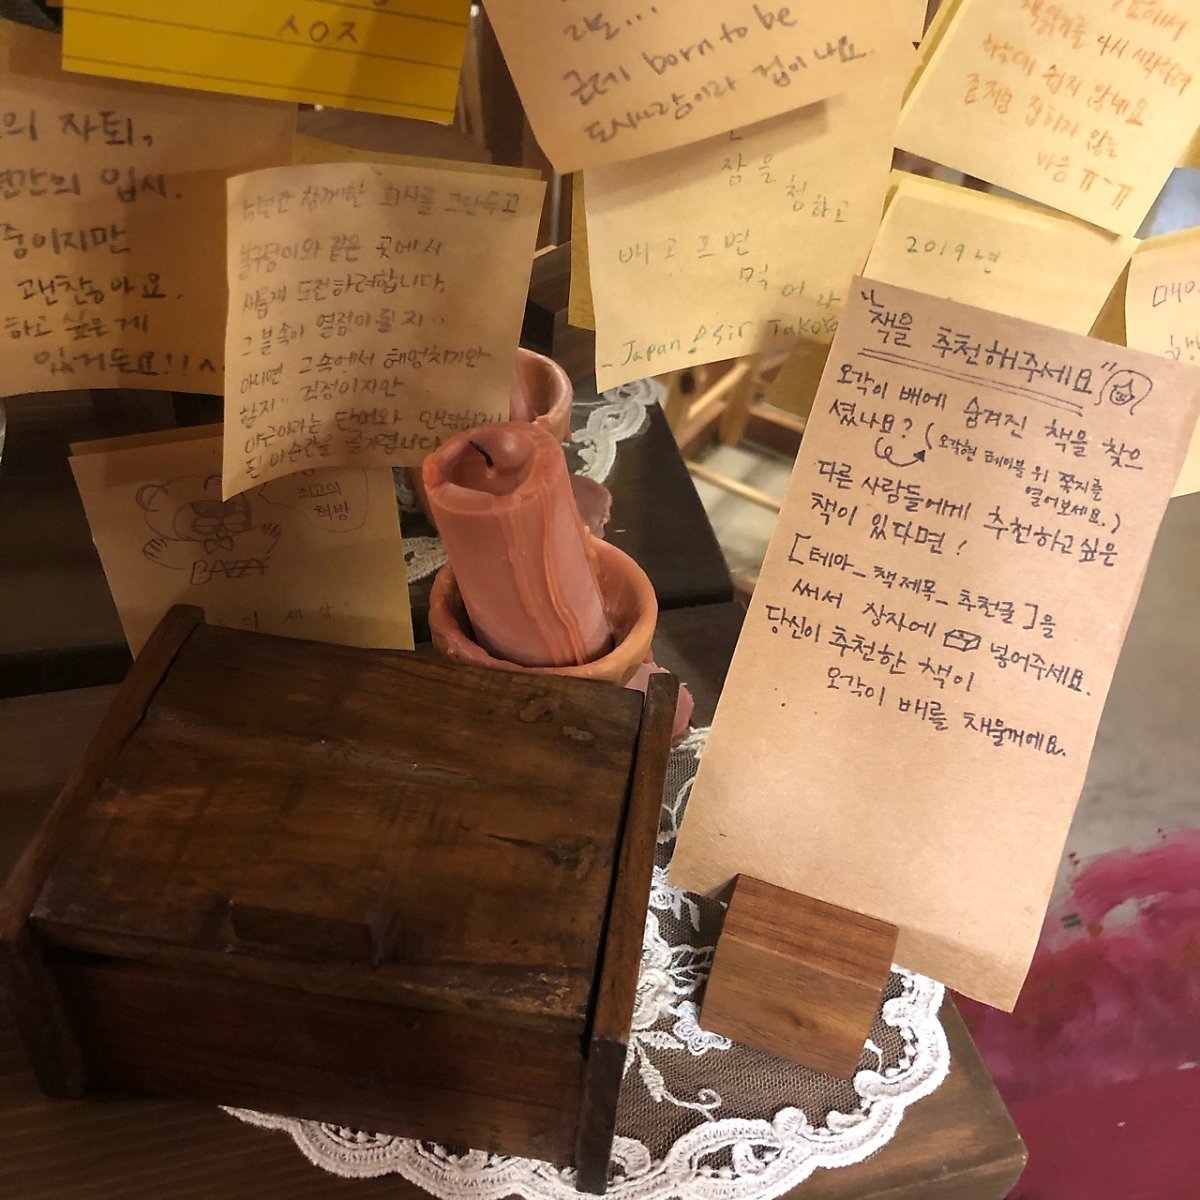 ㅅㅇㅈ
근데 born to be
도시사람이라 겁이 나요.
다시 시작
하는데 쉽지 않네요
좀처럼 잡히지 않는
마음 ㅠ-ㅠ
의 자퇴,
년간의 입시.
중이지만
괜찮아요.
하고 싶은게
있거든요!! ^
함께한 회사를 그만두고
불구덩이와 같은 곳에서
새롭게 도전하려합니다.
그 불속이 열정이 될지..
아니면 그속에서 헤엄치기만
할지.. 걱정이지만
야근이라는 단어와 안녕하게
된 이순간을 즐겨렵니다
잠을 청하고
배고프면
먹어라
- Japan Osir TaKoYa
2019년
매
최고의
책방
의 세상
"책을 추천해주세요"
오각이 배에 숨겨진 책을 찾으
셨나요? (오각형 테이블 위 쪽지를
열어보세요.)
다른 사람들에게 추천하고싶은
책이 있다면!
[테마_책제목_추천글]을
써서 상자에 넣어주세요.
당신이 추천한 책이
오각이 배를 채울꺼에요.